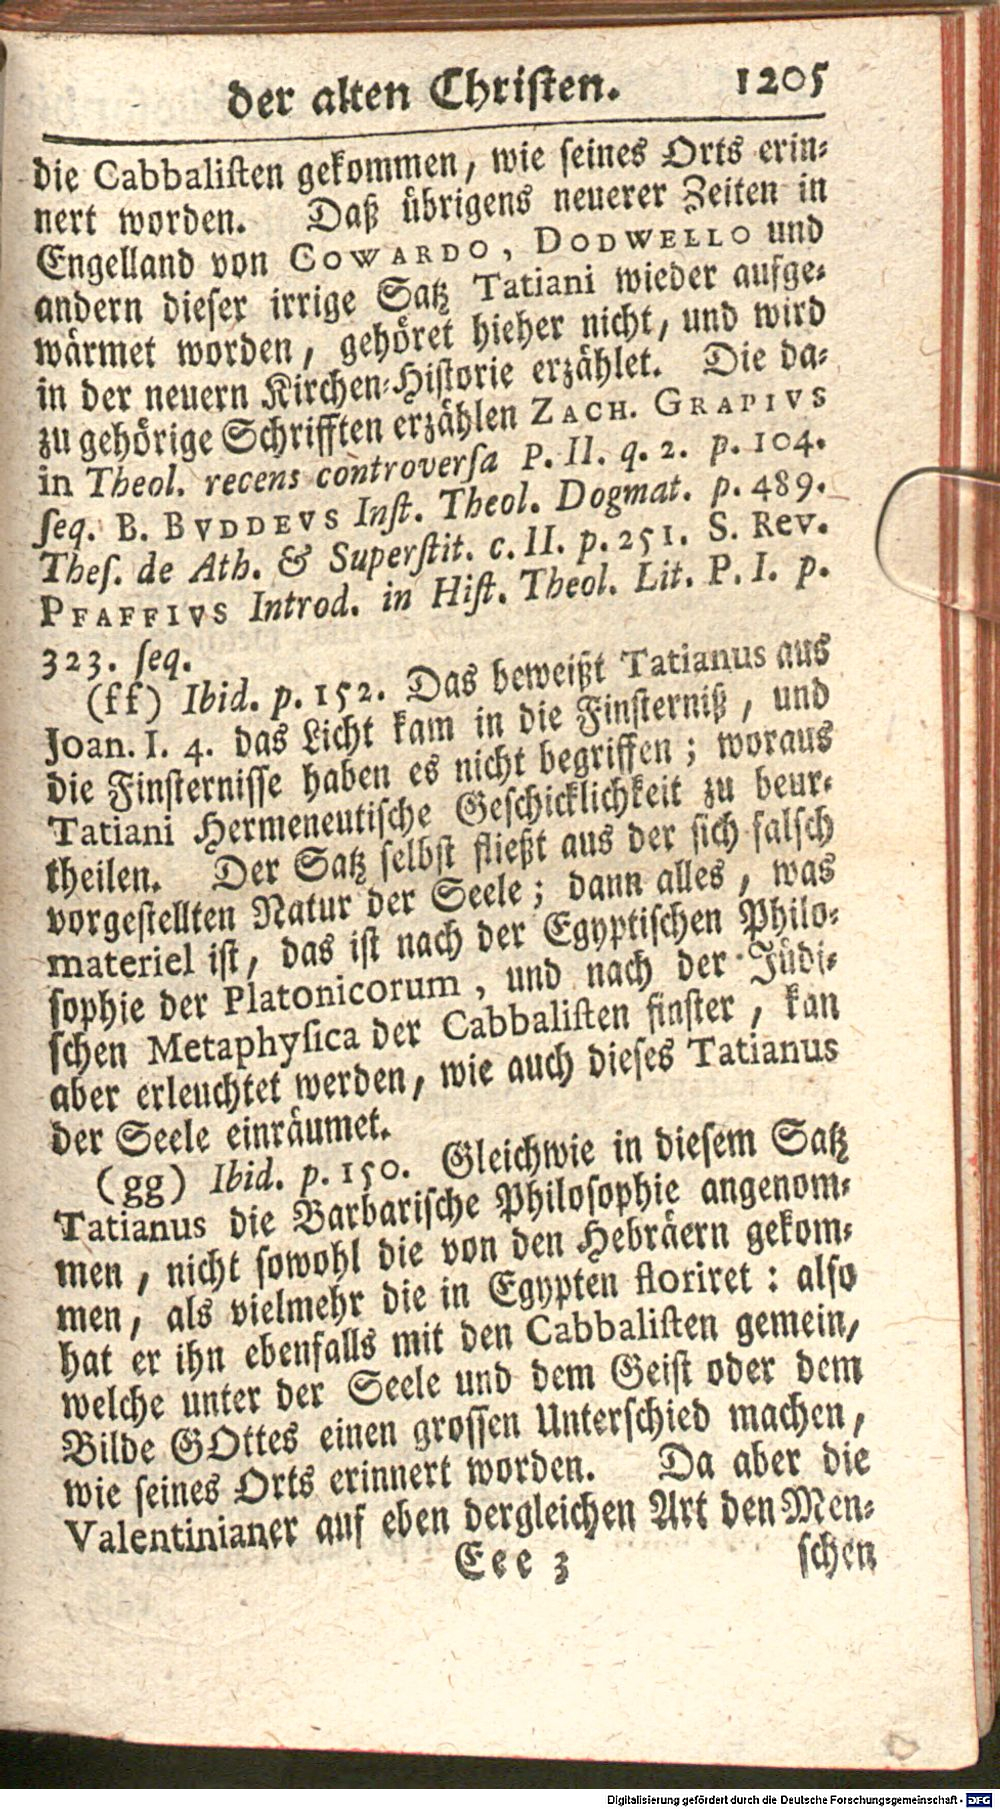 der alten Christen. 1205
die Cabbalisten gekommen, wie seines Orts erin-
nert worden. Daß übrigens neuerer Zeiten in
Engelland von COWARDO, DODWELLO und
andern dieser irrige Satz Tatiani wieder aufge-
wärmet worden, gehöret hieher nicht, und wird
in der neuern Kirchen-Historie erzählet. Die da-
zu gehörige Schrifften erzählen ZACH. GRAPIVS
in Theol. recens controversa P. II. q. 2. p. 104.
seq. B. BVDDEVS Inst. Theol. Dogmat. p. 489.
Thes. de Ath. & Superstit. c. II. p. 251. S. Rev.
PFAFFIVS Introd. in Hist. Theol. Lit. P. I. p.
323. seq.
(ff) Ibid. p. 152. Das beweißt Tatianus aus
Joan. I. 4. das Licht kam in die Finsterniß, und
die Finsternisse haben es nicht begriffen; woraus
Tatiani Hermeneutische Geschicklichkeit zu beur-
theilen. Der Satz selbst fließt aus der sich falsch
vorgestellten Natur der Seele; dann alles, was
materiel ist, das ist nach der Egyptischen Philo-
sophie der Platonicorum, und nach der Jüdi-
schen Metaphysica der Cabbalisten finster, kan
aber erleuchtet werden, wie auch dieses Tatianus
der Seele einräumet.
(gg) Ibid. p. 150. Gleichwie in diesem Satz
Tatianus die Barbarische Philosophie angenom-
men, nicht sowohl die von den Hebräern gekom-
men, als vielmehr die in Egypten floriret: also
hat er ihn ebenfalls mit den Cabbalisten gemein,
welche unter der Seele und dem Geist oder dem
Bilde GOttes einen grossen Unterschied machen,
wie seines Orts erinnert worden. Da aber die
Valentinianer auf eben dergleichen Art den Men-
Eee 3 schen
Digitalisierung gefördert durch die Deutsche Forschungsgemeinschaft - DFG